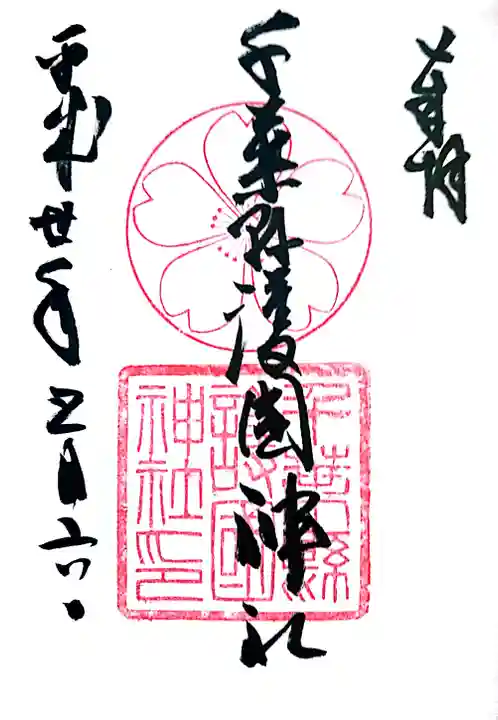 奉拝
千葉県護国神社
平成丗年五月六日
千葉縣
護國
神社印